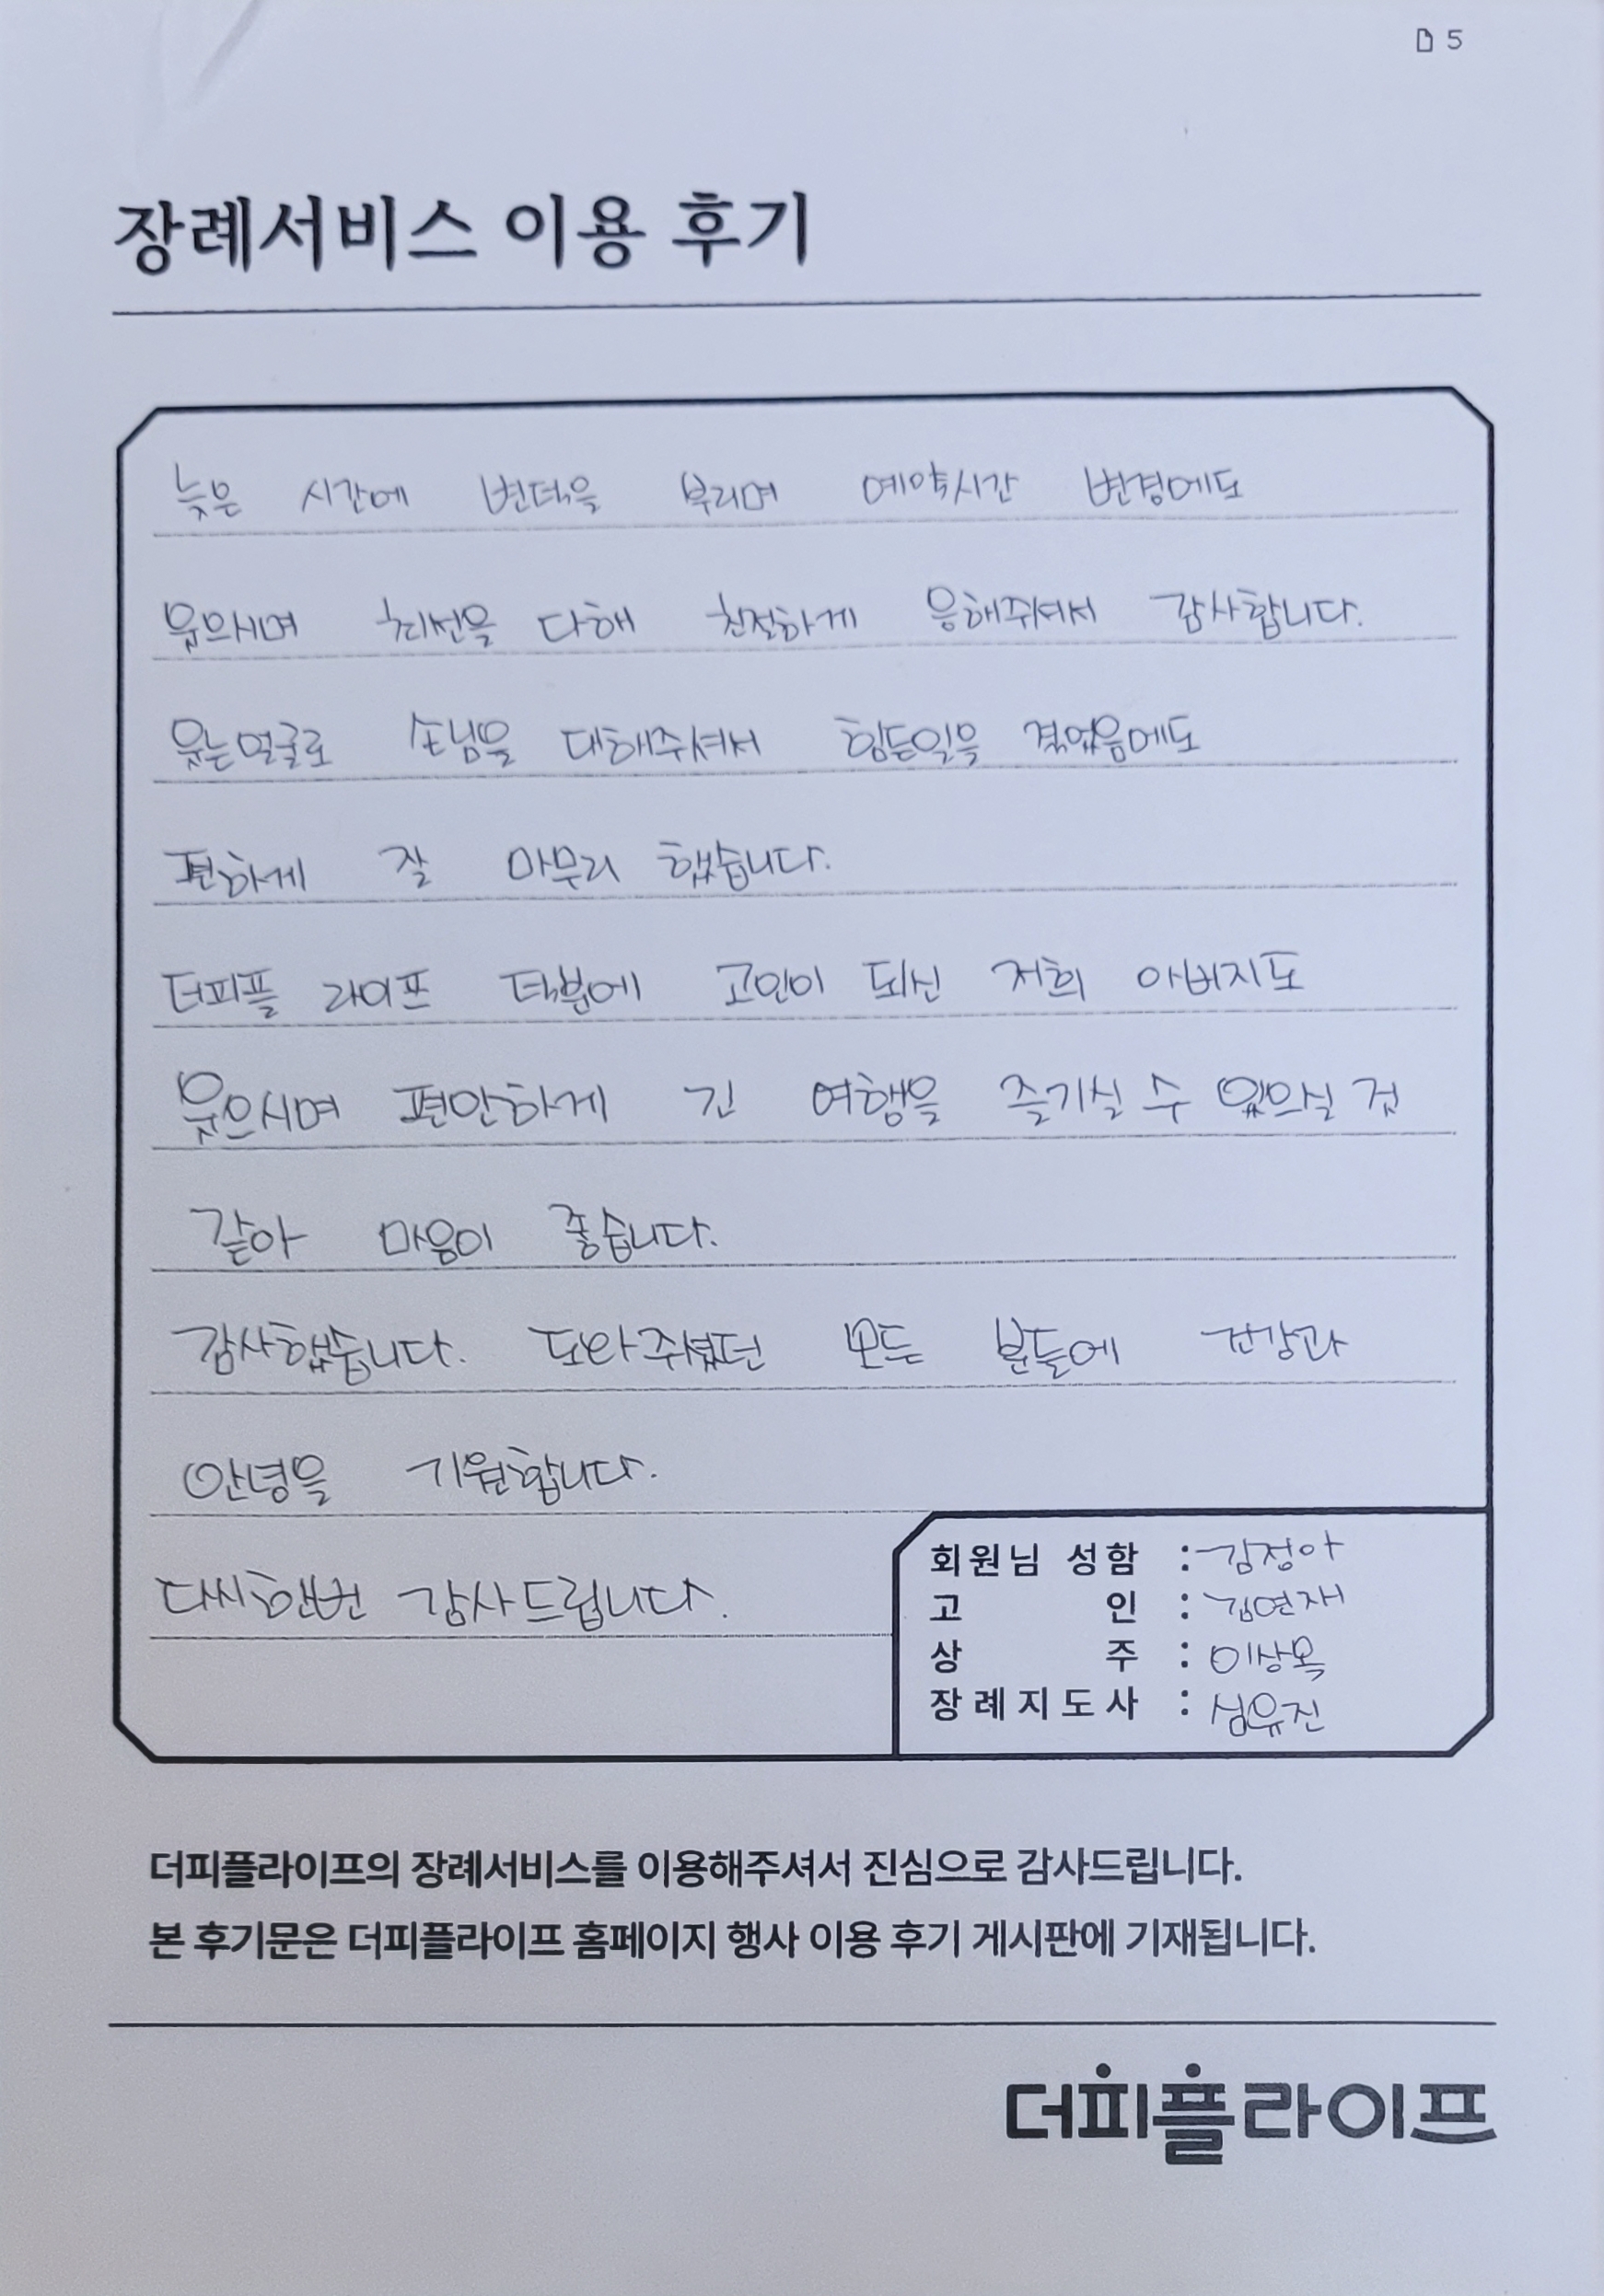 5
장례서비스 이용 후기
늦은 시간에 변덕을 부리며 예약시간 변경에도
웃으시며 최선을 다해 친절하게 응해주셔서 감사합니다.
웃는얼굴로 손님을 대해주셔서 힘든일을 겪었음에도
편하게 잘 마무리 했습니다.
더피플 라이프 덕분에 고인이 되신 저희 아버지도
웃으시며 편안하게 긴 여행을 즐기실 수 있으실 것
같아 마음이 좋습니다.
감사했습니다. 도와주셨던 모든 분들에 건강과
안녕을 기원합니다.
다시한번 감사드립니다.
회원님 성함 : 김정아
고 인 : 김연재
상 주 : 이상목
장례지도사 : 심유진
더피플라이프의 장례서비스를 이용해주셔서 진심으로 감사드립니다.
본 후기문은 더피플라이프 홈페이지 행사 이용 후기 게시판에 기재됩니다.
더피플라이프